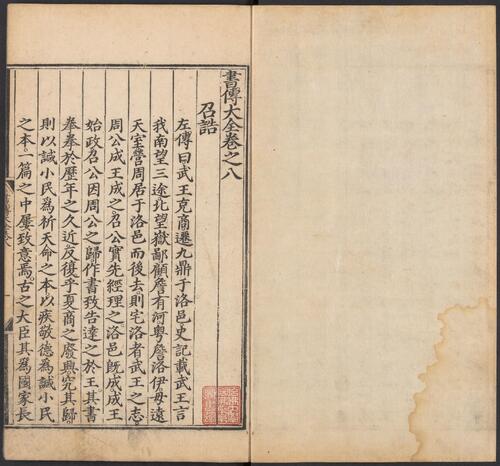 書傳大全卷之八
召誥
左傳曰武王克商遷九鼎于洛邑史記載武王言
我南望三途北望嶽鄙顧詹有河粵詹洛伊毋遠
天室營周居于洛邑而後去則宅洛者武王之志
周公成王成之召公實先經理之洛邑旣成成王
始政召公因周公之歸作書致告達之於王其書
拳拳於歷年之久近反復乎夏商之廢興究其歸
則以諴小民為祈天命之本以疾敬德為諴小民
之本一篇之中屢致意焉古之大臣其為國家長